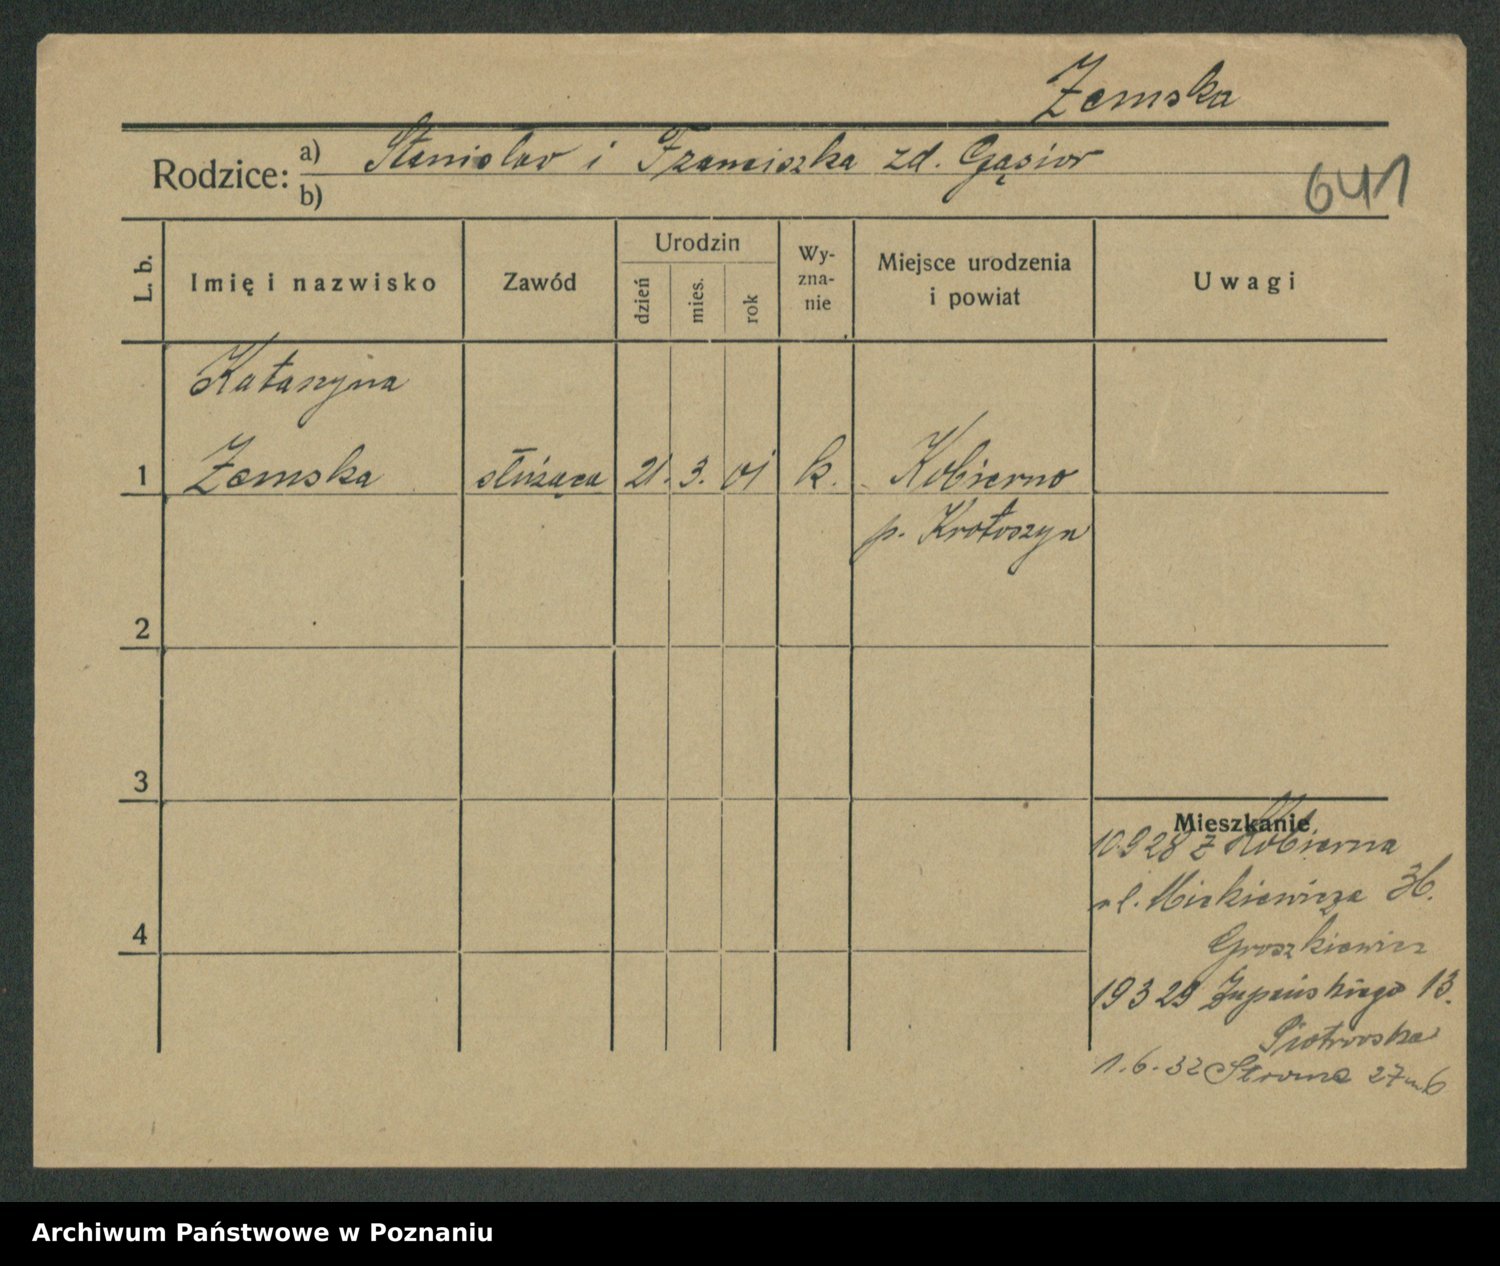 Żemska
Rodzice: a) Stanisław i Franciszka zd. Gąsior
b)
641
L. b. Imię i nazwisko Zawód Urodzin dzień mies. rok Wy-zna-nie Miejsce urodzenia i powiat Uwagi
Katarzyna
1 Żemska służąca 21. 3. 01 k. Kobierno
p. Krotoszyn
2
3
Mieszkanie
10 9 28 z Kobierna
ul. Mickiewicza 36.
4
Groszkiewicz
19 3 29 Żupańskiego 13.
Piotrowska
1.6.32 Stroma 27 m 6
Archiwum Państwowe w Poznaniu